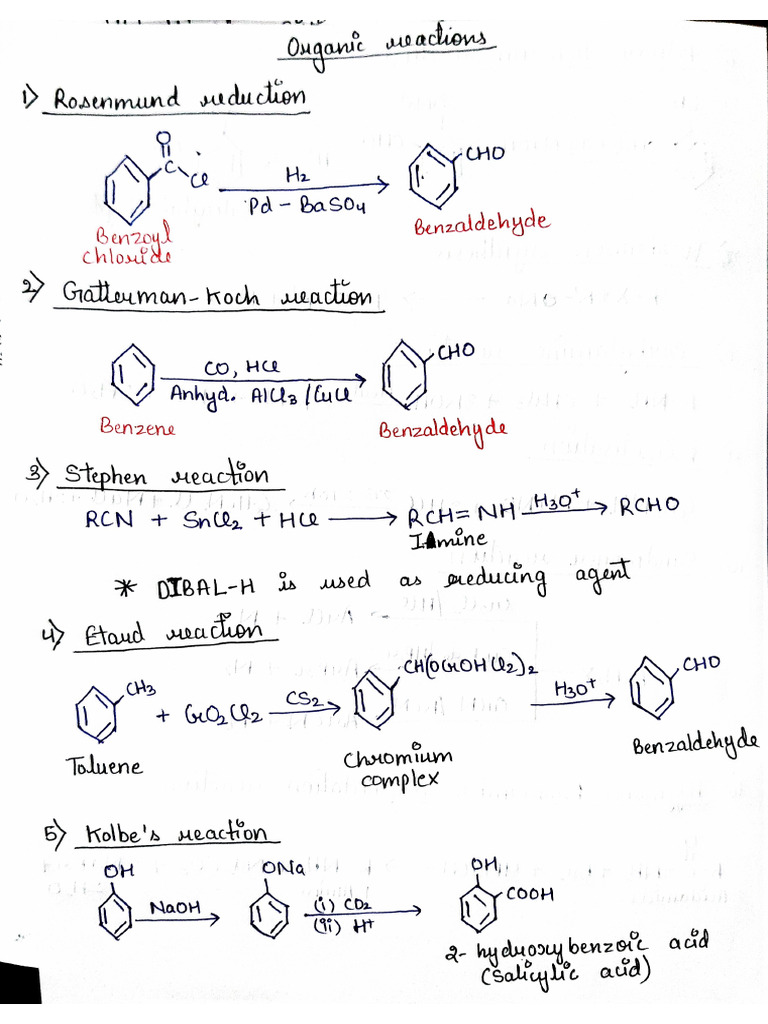 Organic reactions
1) Rosenmund reduction
O
C
Cl
H2
Pd - BaSO4
CHO
Benzoyl
chloride
Benzaldehyde
2) Gatterman-Koch reaction
CO, HCl
Anhyd. AlCl3/CuCl
CHO
Benzene
Benzaldehyde
3) Stephen reaction
RCN + SnCl2 + HCl → RCH=NH H3O+ → RCHO
Imine
* DIBAL-H is used as reducing agent
4) Etard reaction
CH3 + CrO2Cl2 CS2 → CH(OCrOHCl2)2 H3O+ → CHO
Toluene
Chromium
complex
Benzaldehyde
5) Kolbe's reaction
OH
NaOH
ONa
(i) CO2
(ii) H+
OH
COOH
2-hydroxybenzoic acid
(Salicylic acid)